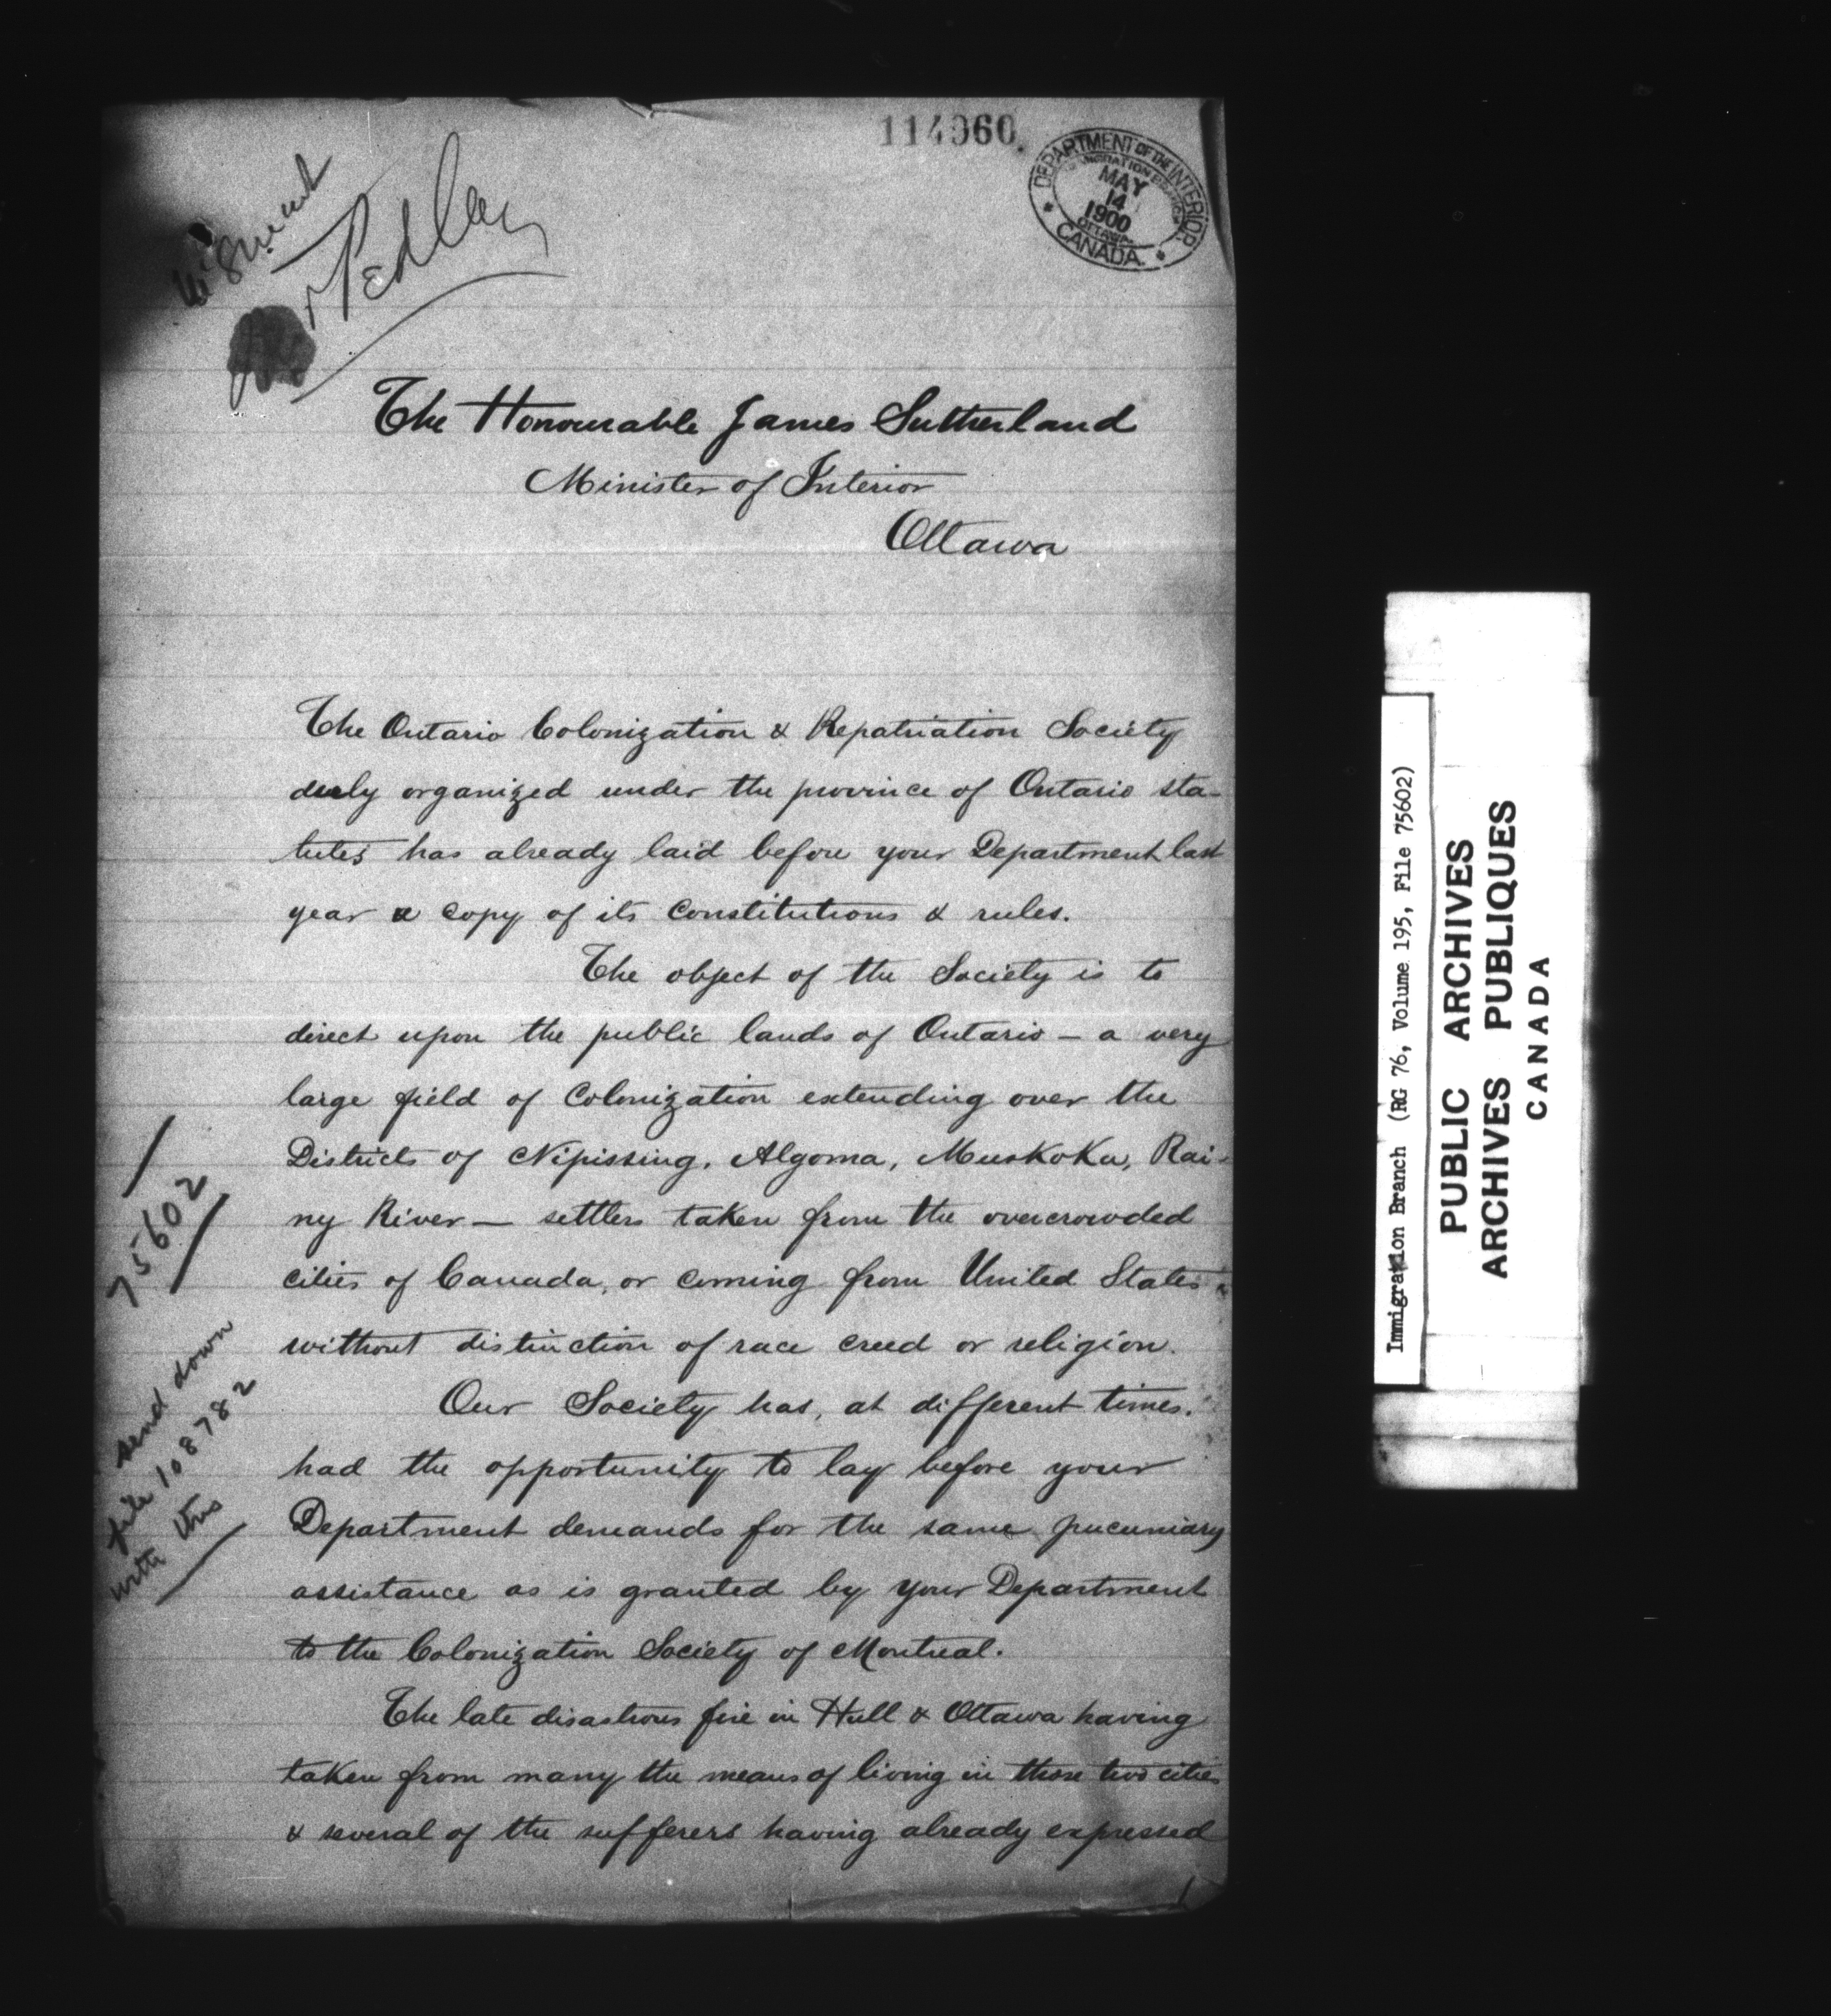 114960.
DEPARTMENT OF THE INTERIOR
IMMIGRATION BRANCH
MAY
14
1900
OTTAWA
CANADA
Mr Pedley
The Honourable James Sutherland
Minister of Interior
Ottawa
The Ontario Colonization & Repatriation Society
duly organized under the province of Ontario sta-
tutes has already laid before your Department last
year a copy of its Constitutions & rules.
The object of the Society is to
direct upon the public lands of Ontario — a very
large field of Colonization extending over the
Districts of Nipissing, Algoma, Muskoka, Rai-
ny River — settlers taken from the overcrowded
cities of Canada, or coming from United States
without distinction of race creed or religion.
Our Society has, at different times.
had the opportunity to lay before your
Department demands for the same pucuniary
assistance as is granted by your Department
to the Colonization Society of Montreal.
The late disastrous fire in Hull & Ottawa having
taken from many the means of living in those two cities
& several of the sufferers having already expressed
75602
send down
file 108782
with this
1
Immigration Branch (RG 76, Volume 195, File 75602)
PUBLIC ARCHIVES
ARCHIVES PUBLIQUES
CANADA